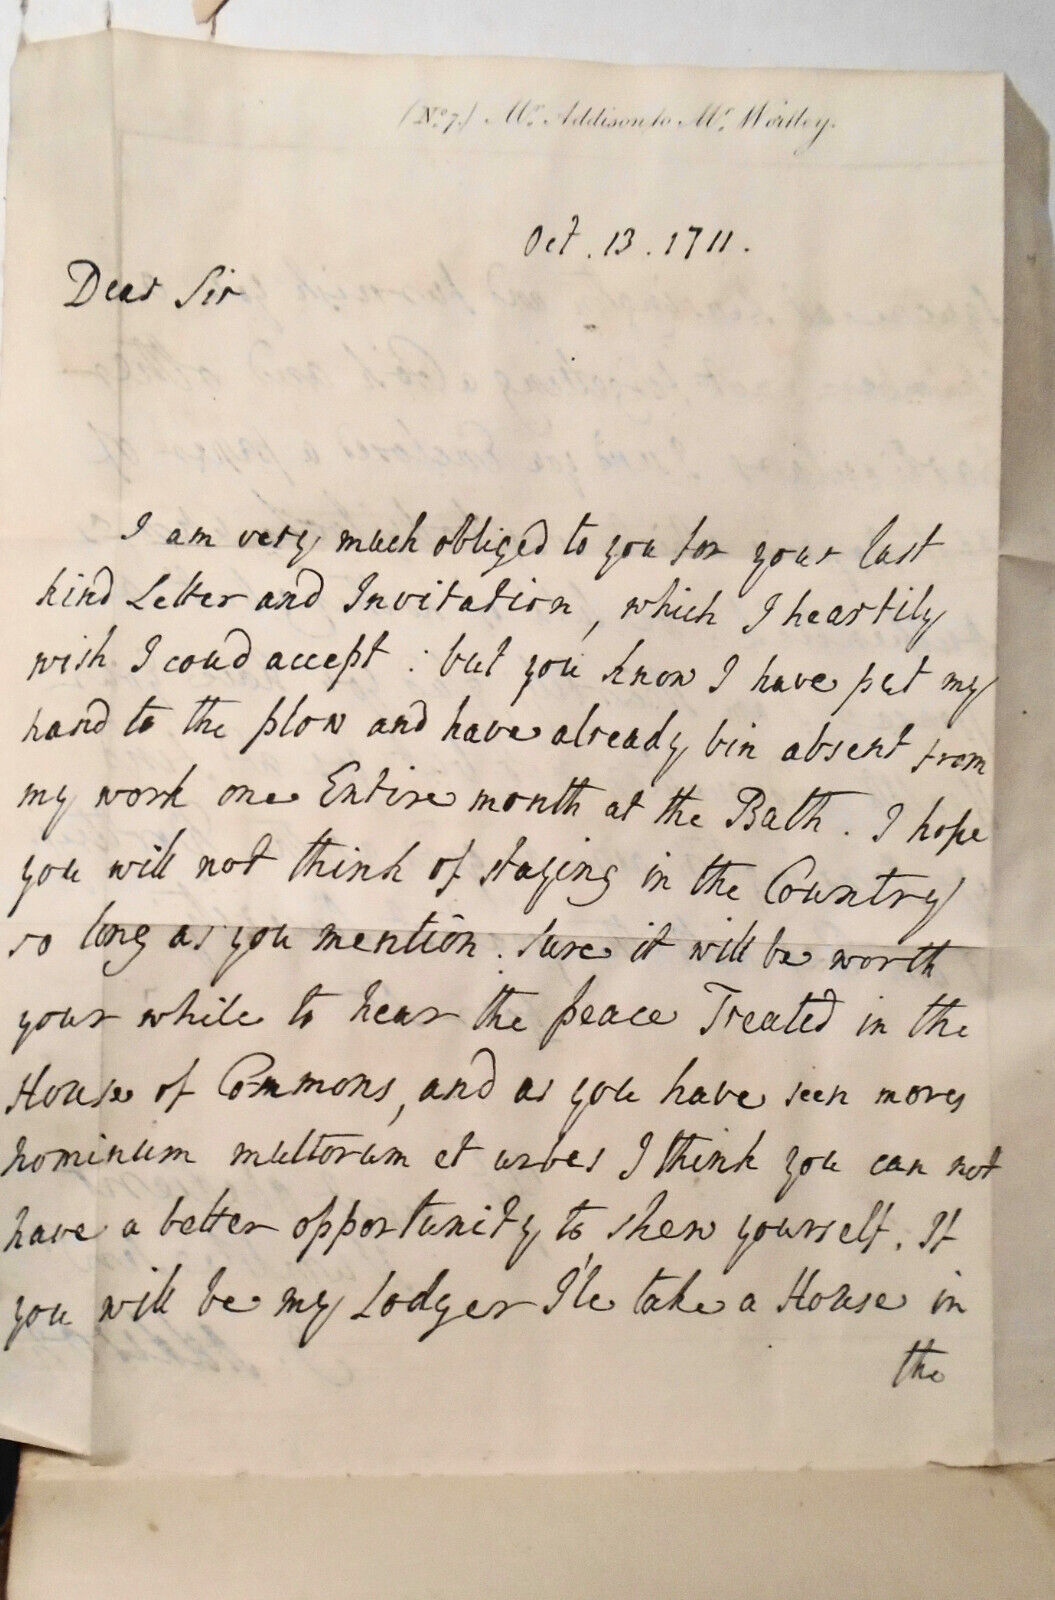 (No. 7.) Mr. Addison to Mr. Wortley.
Oct. 13. 1711.
Dear Sir
I am very much obliged to you for your last
kind Letter and Invitation, which I heartily
wish I coud accept: but you know I have put my
hand to the plow and have already bin absent from
my work one Entire month at the Bath. I hope
you will not think of staying in the Country
so long as you mention. Sure it will be worth
your while to hear the peace Treated in the
House of Commons, and as you have seen mores
hominum multorum et urbes I think you can not
have a better opportunity to shew yourself. If
you will be my Lodger I'le take a House in
the